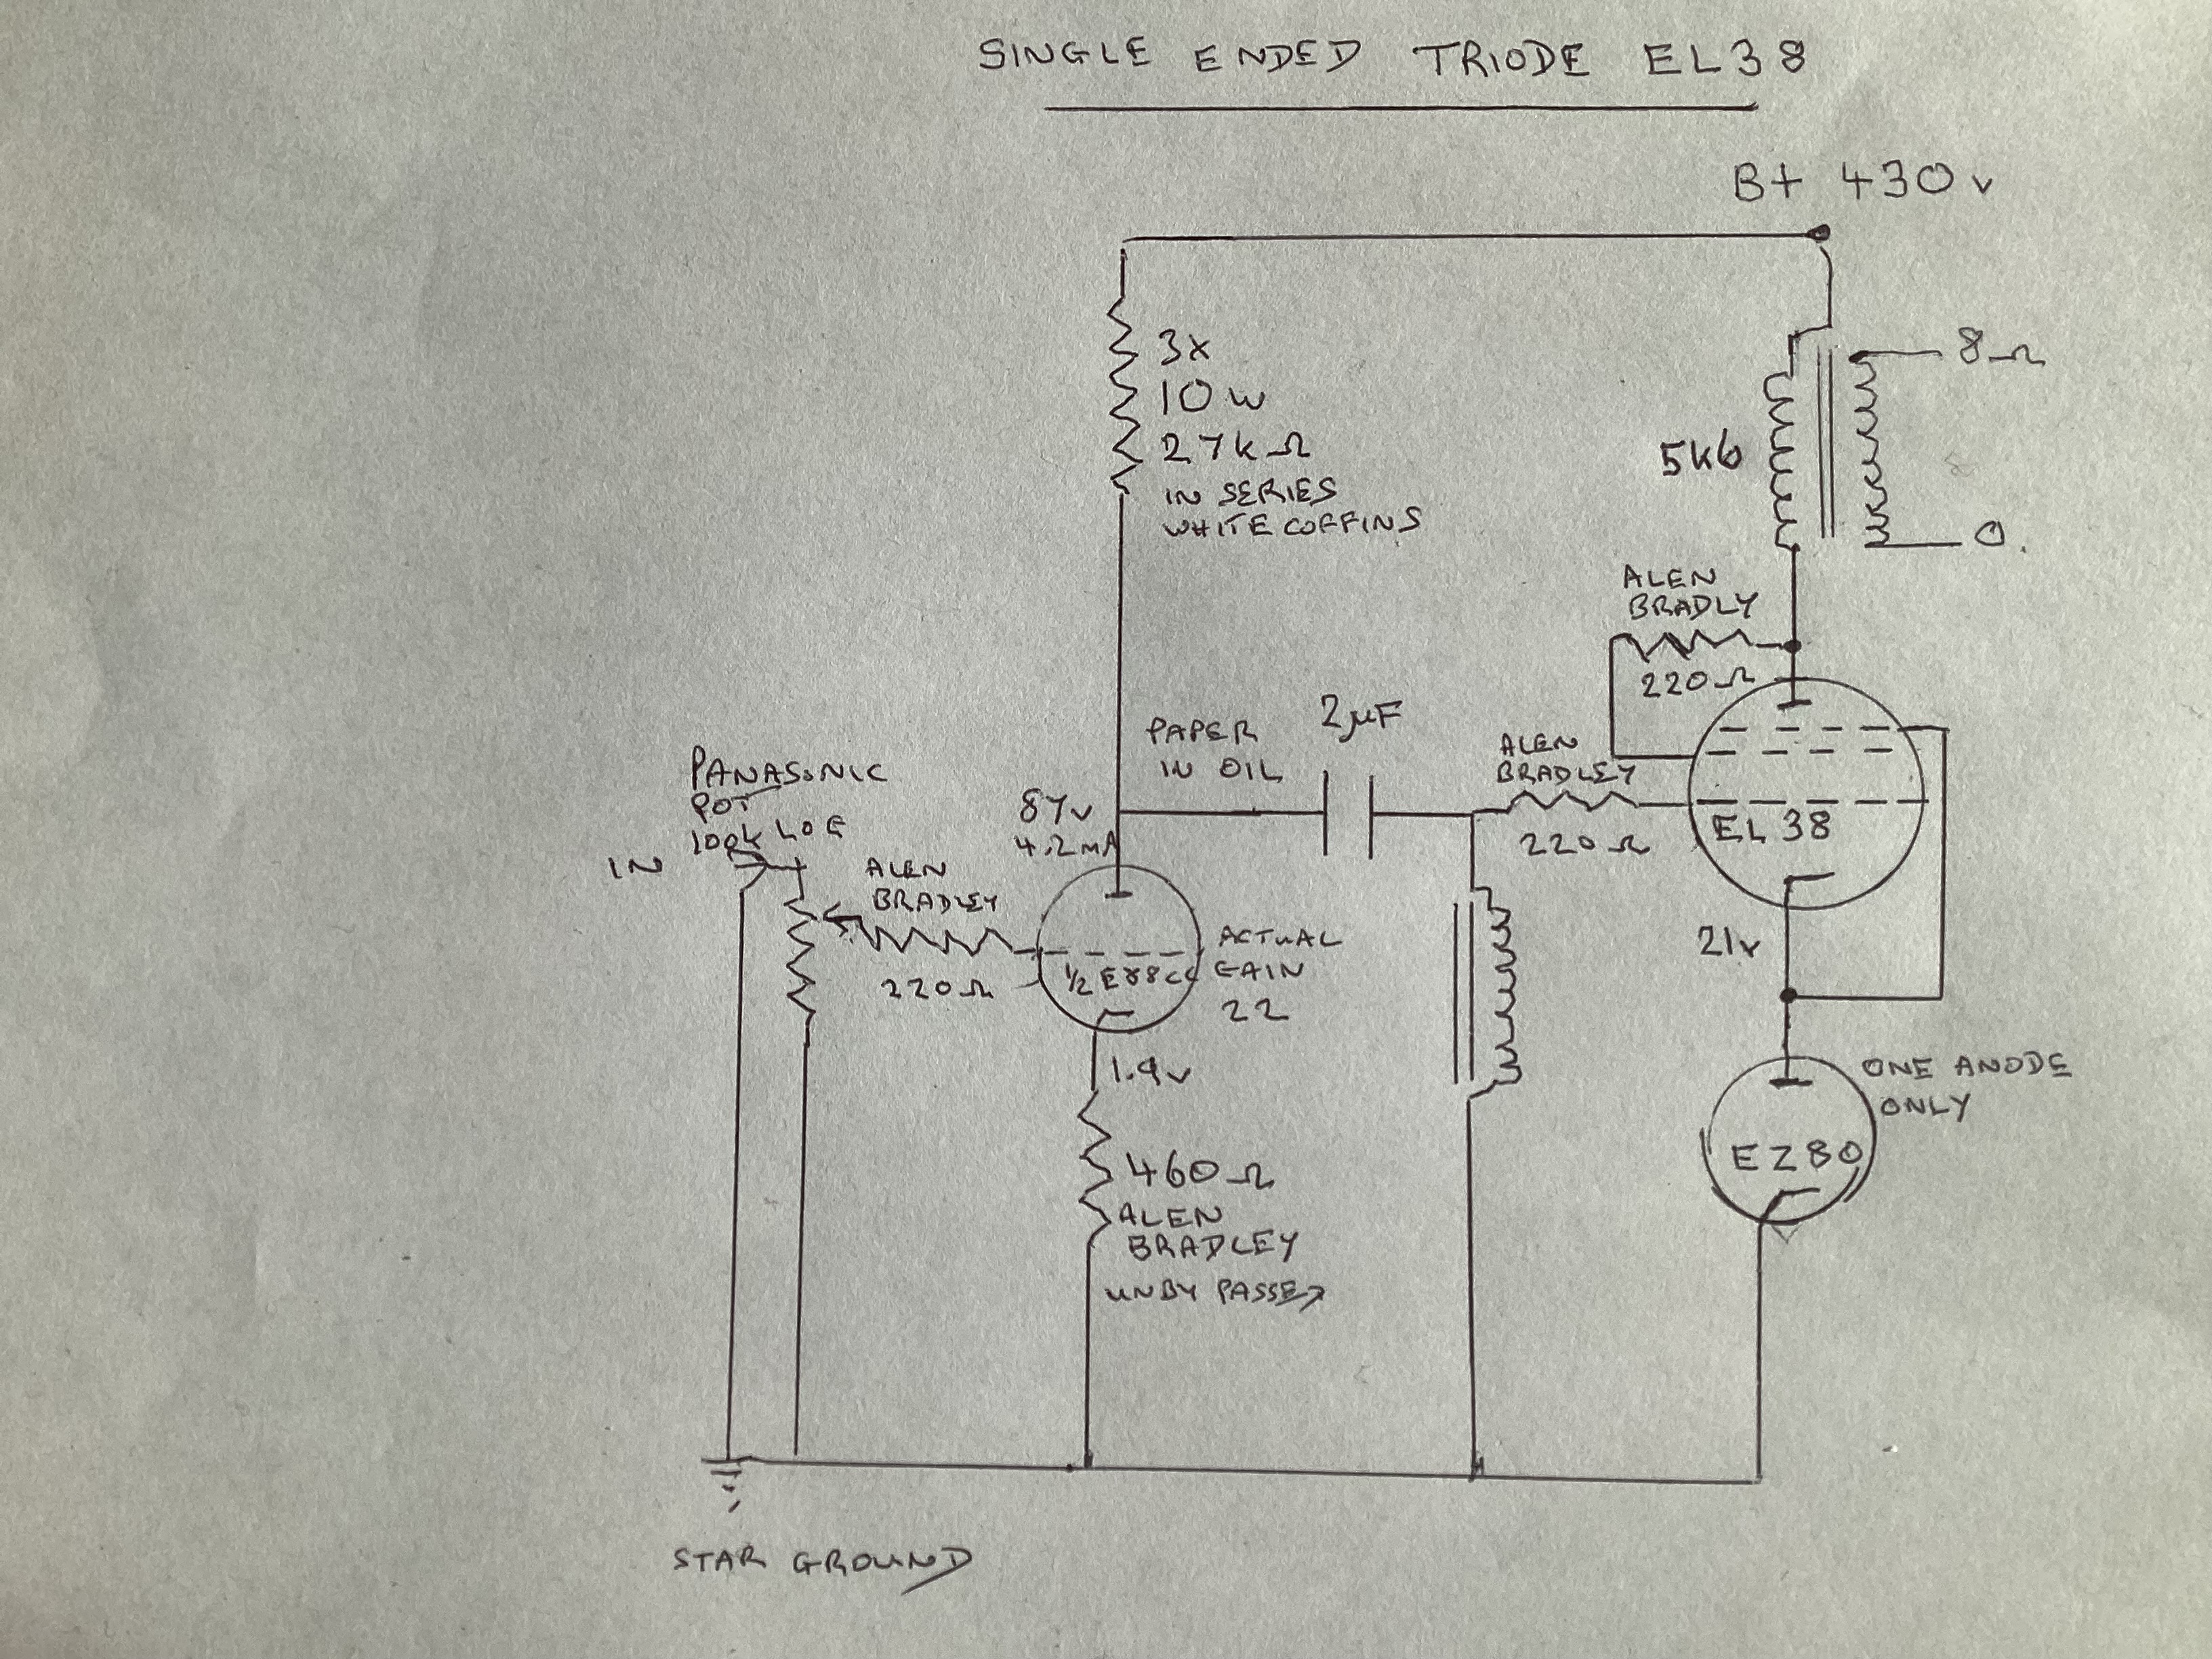 SINGLE ENDED TRIODE EL38
B+ 430v
3x
10w
27kΩ
IN SERIES
WHITE COFFINS
5k6
8Ω
0.
ALEN
BRADLY
220Ω
PAPER
IN OIL
2μF
ALEN
BRADLEY
220Ω
EL38
21v
PANASONIC
POT
100k LOG
IN
ALEN
BRADLEY
220Ω
87v
4.2mA
½ E88CC
ACTUAL
GAIN
22
1.9v
460Ω
ALEN
BRADLEY
UNBYPASSED
ONE ANODE
ONLY
EZ80
STAR GROUND